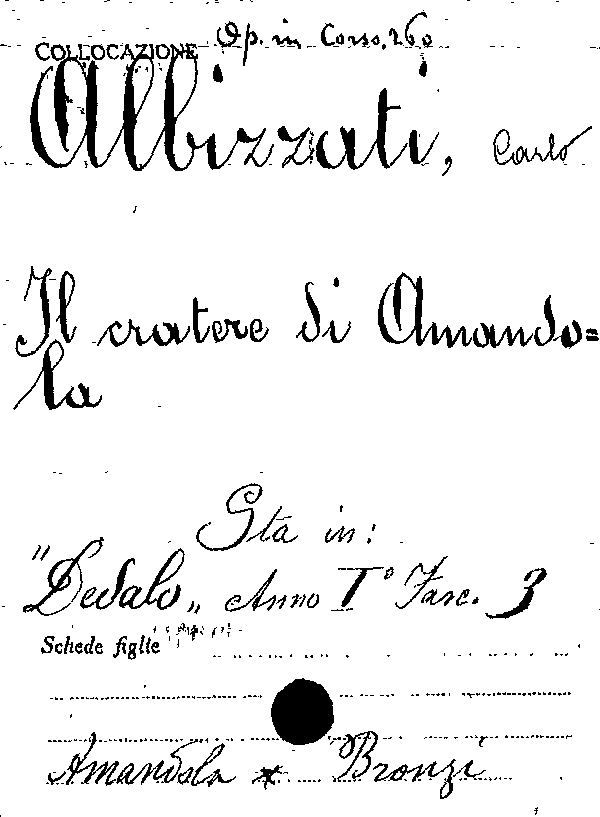 COLLOCAZIONE Op. in Corso, 260
Albizzati, Carlo
Il cratere di Amando=
la
Sta in:
"Dedalo„ Anno I° Fasc. 3
Schede figlie
Amandola * Bronzi